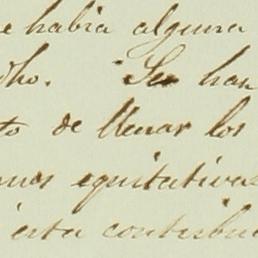 e habia alguna
dho. Se han
to de llenar los
mas equitativas
esta contribu